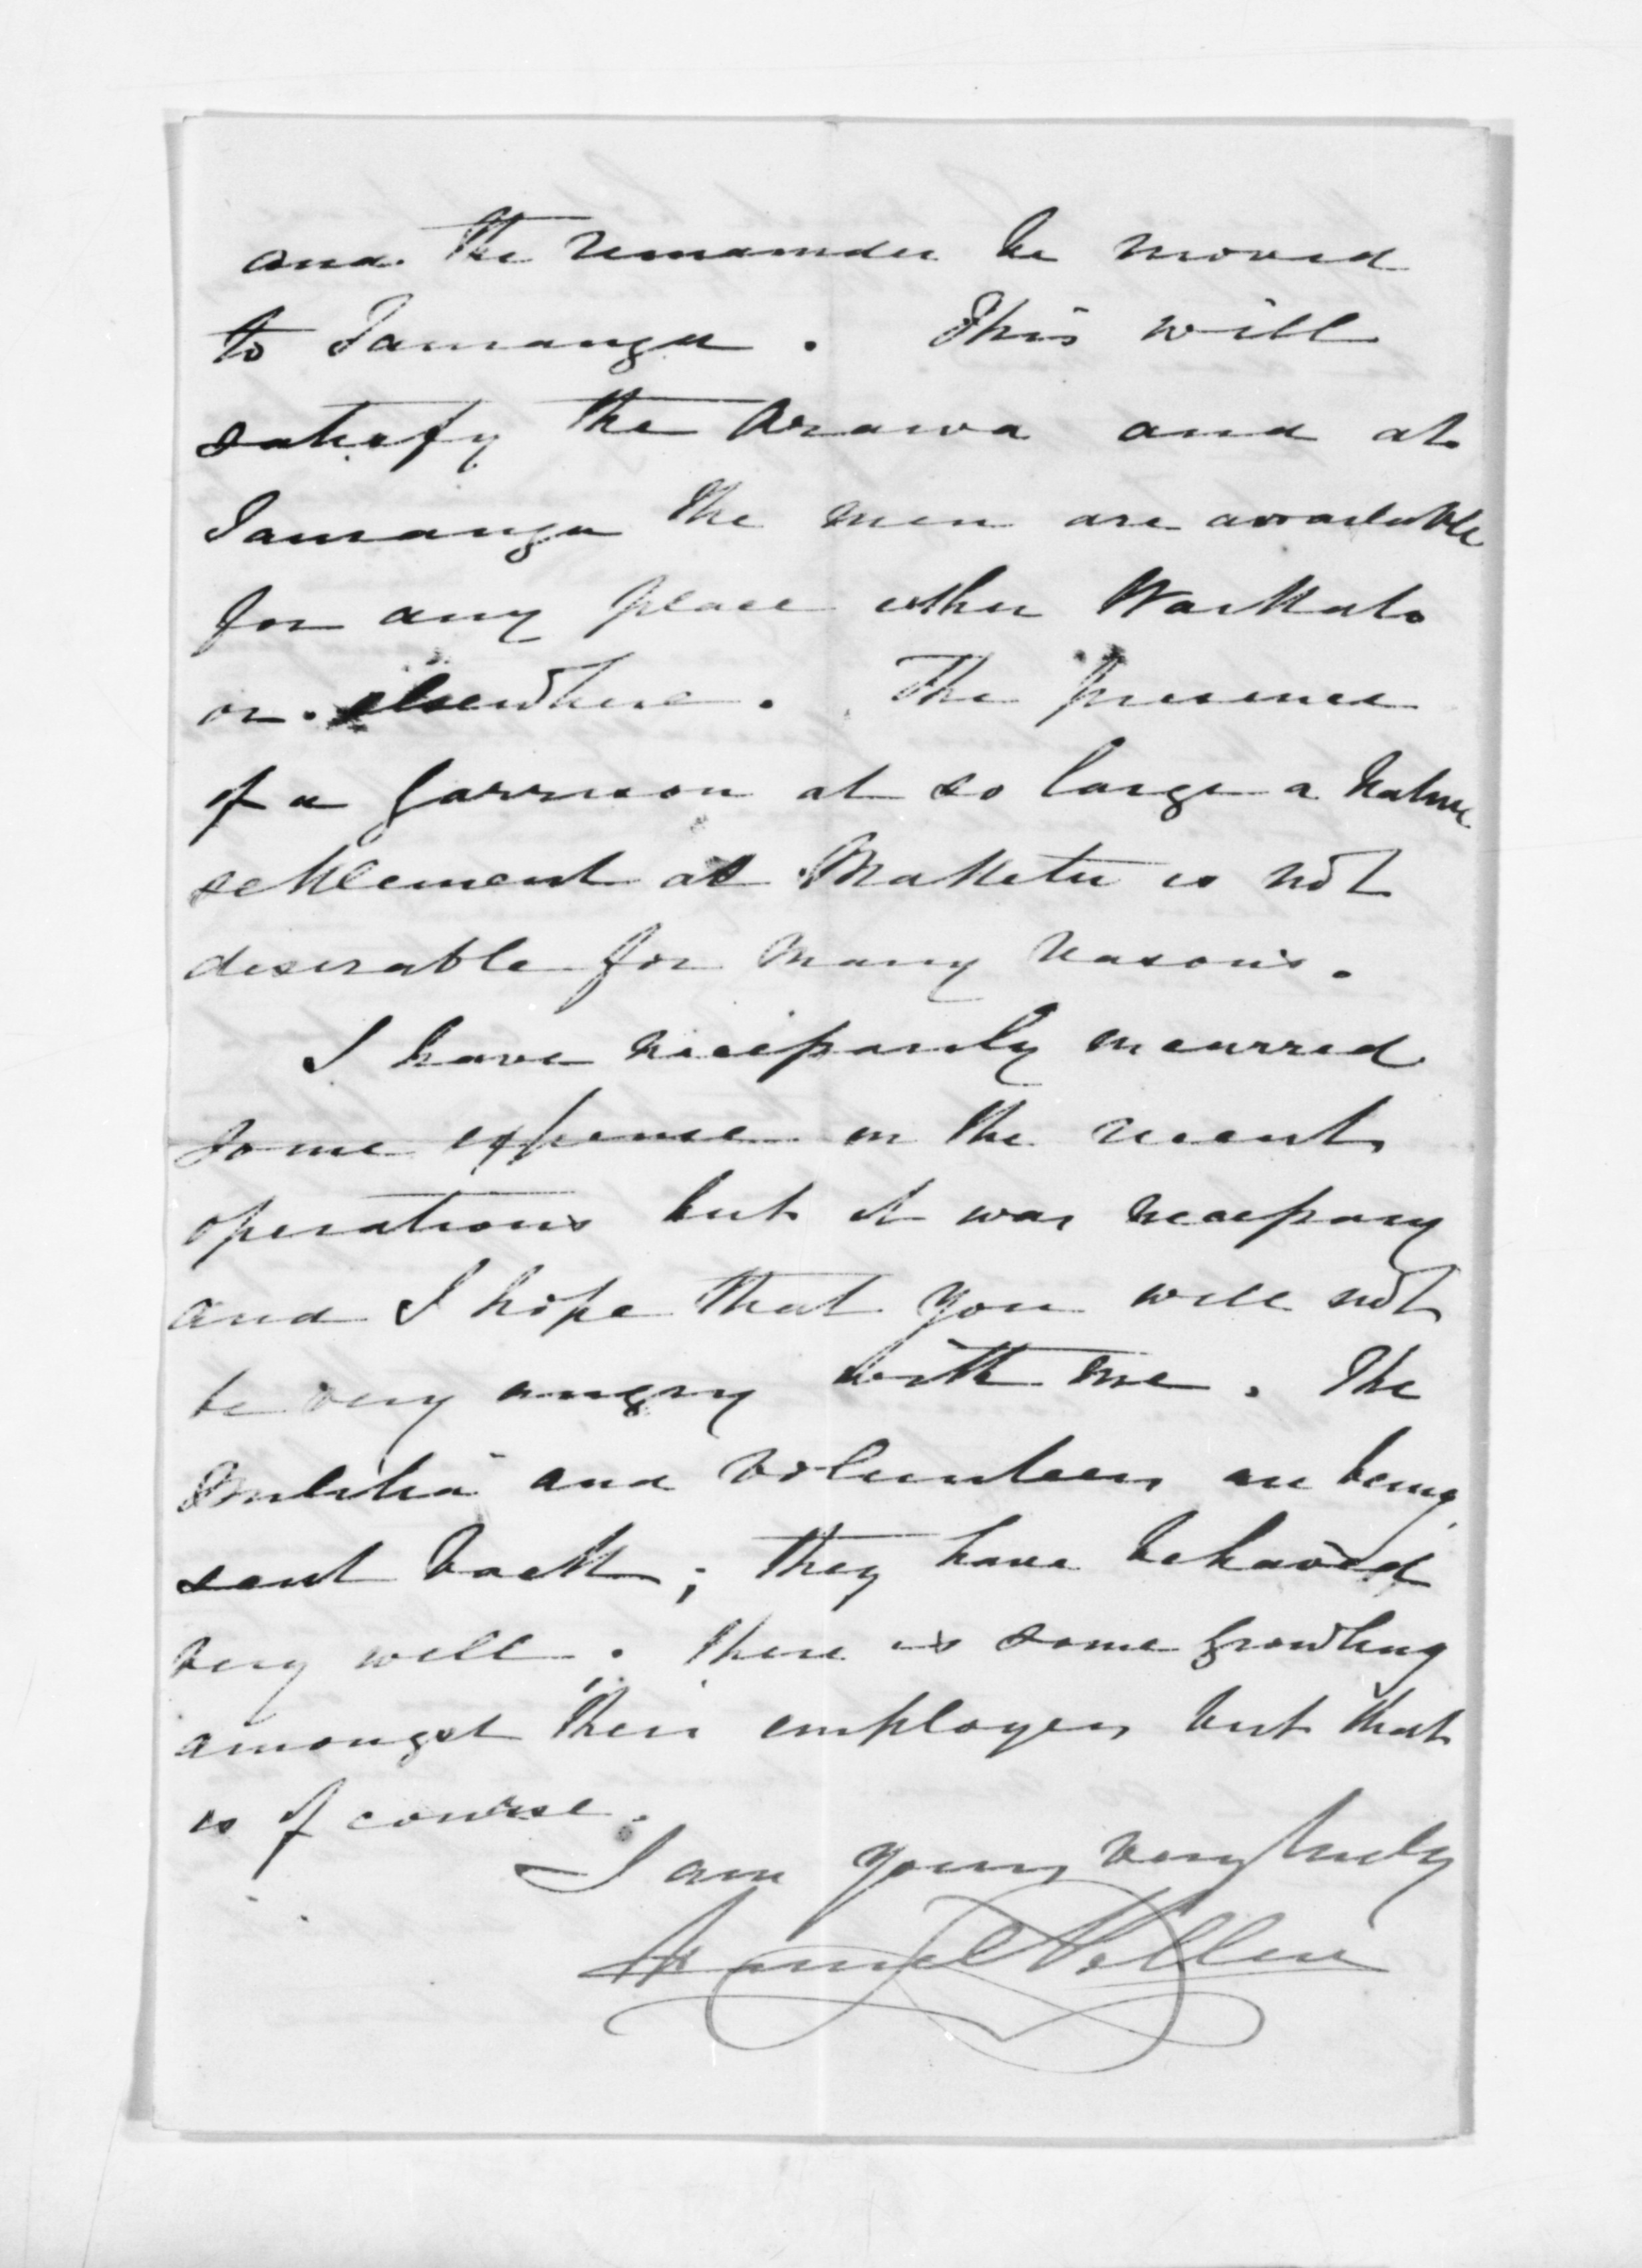 and the remainder be moved
to Tauranga. This will
satisfy the Arawa and at
Tauranga the men are available
for any place either Waikato
or elsewhere. The presence
of a garrison at so large a native
settlement as Maketu is not
desirable for many reasons.
I have necessarily incurred
some expense in the recent
operations but it was necessary
and I hope that you will not
be very angry with me. The
Militia and Volunteers are being
sent back; they have behaved
very well. There is some growling
amongst their employers but that
is of course.
I am yours very truly
Daniel Pollen